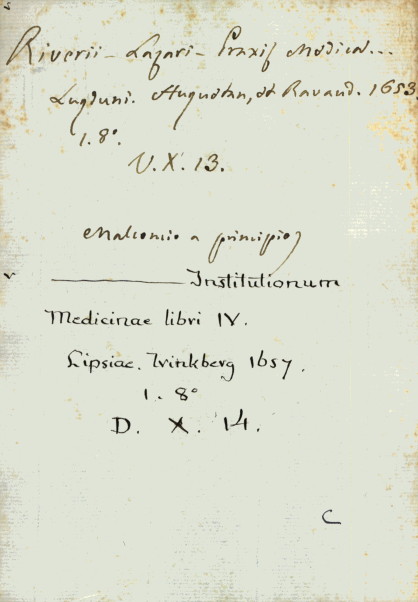 Riverii - Lazari - Praxis Medica...
Lugduni. Huguetan, et Ravaud. 1653
1. 8°.
V. X. 13.
Malconcio a principio
——— Institutionum
Medicinae libri IV.
Lipsiae. Trinkberg 1657.
1. 8°
D. X. 14.
C